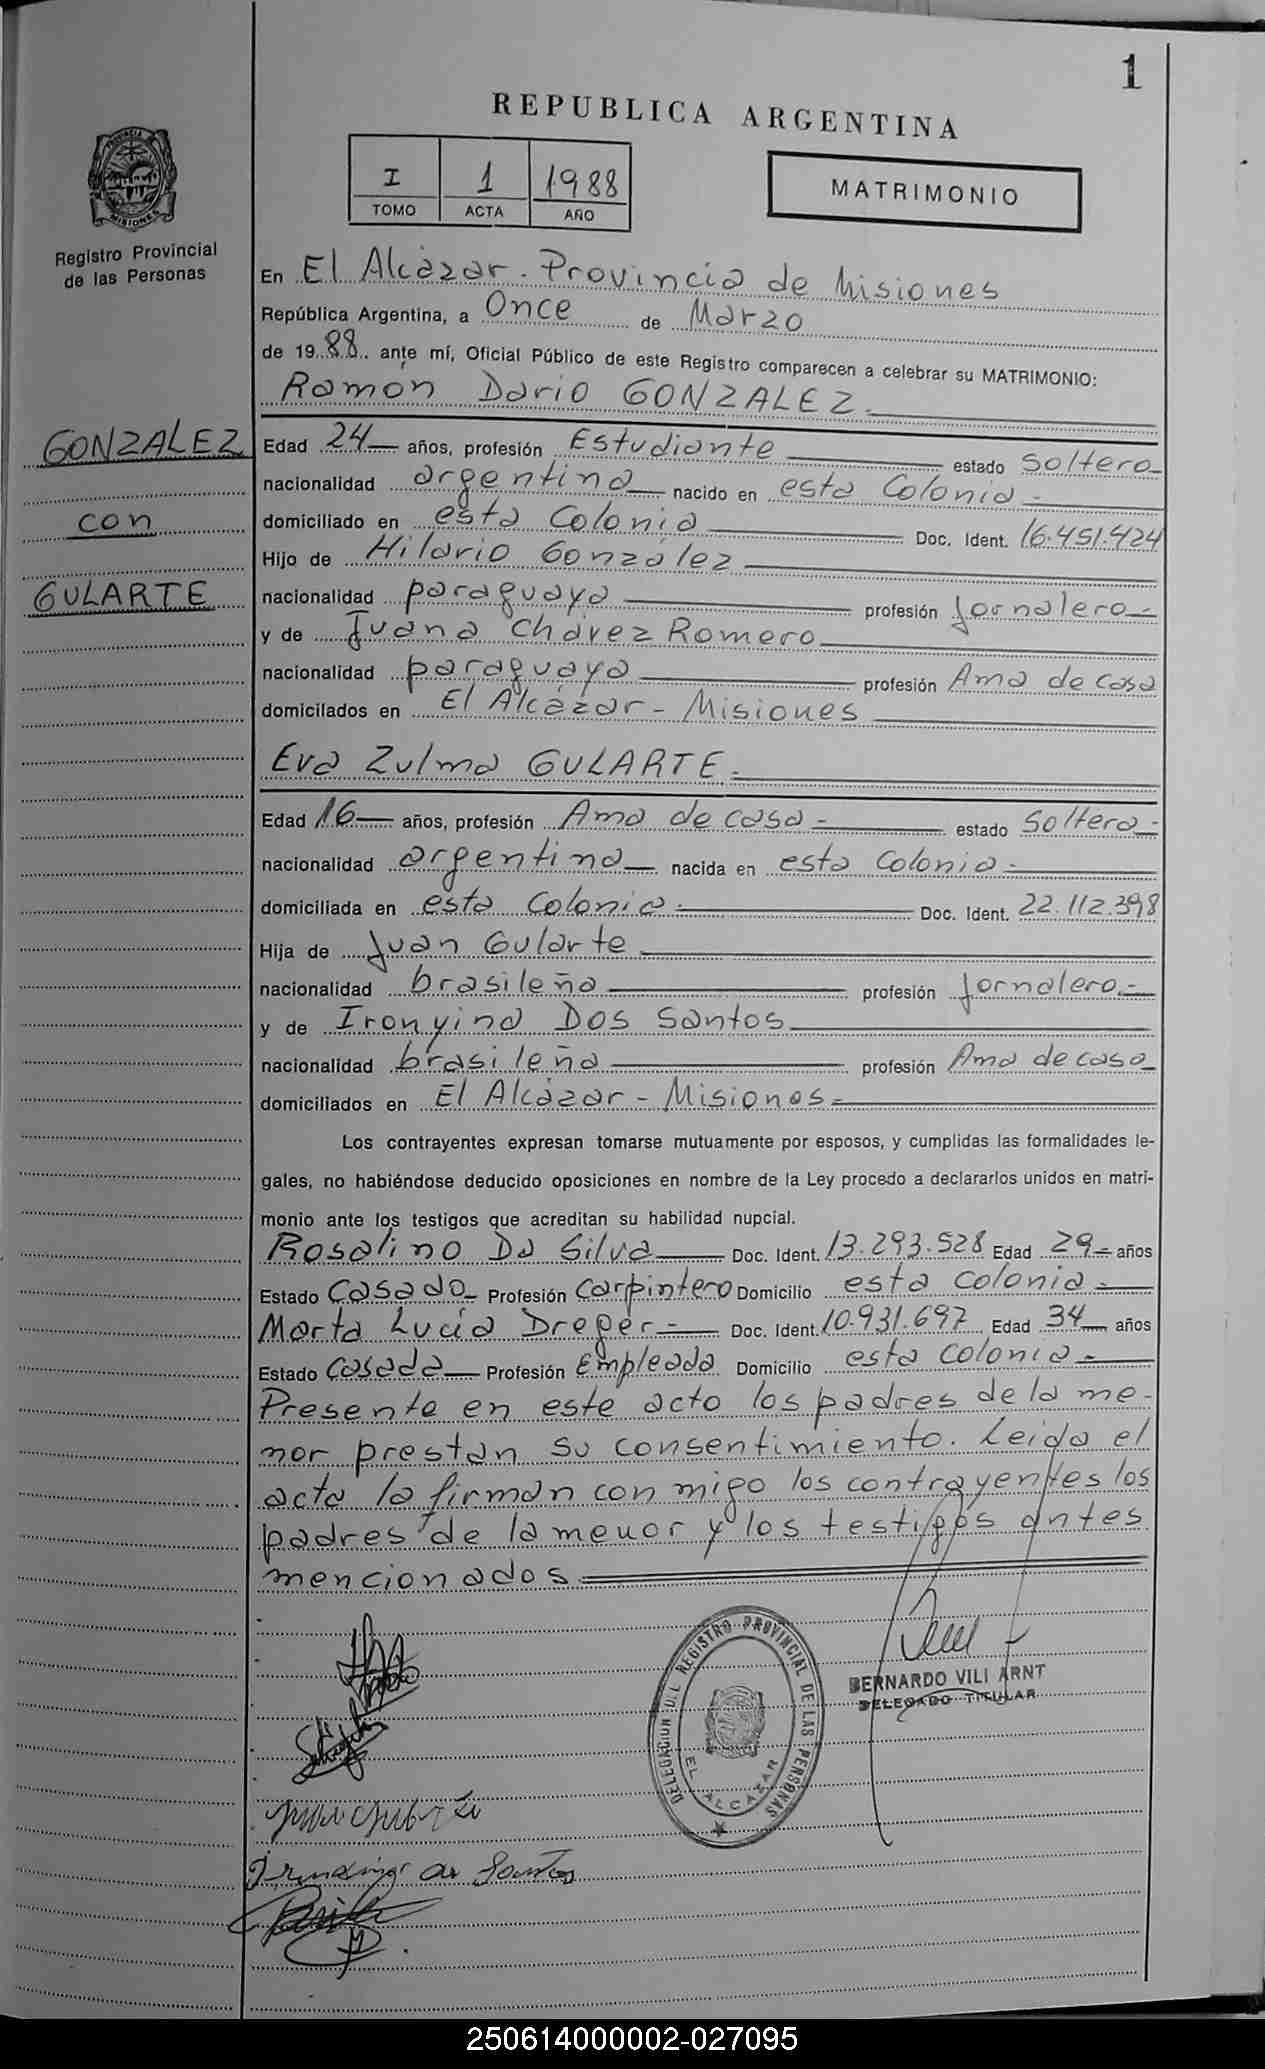 1
REPUBLICA ARGENTINA
PROVINCIA DE MISIONES
Registro Provincial
de las Personas
I 1 1988
TOMO ACTA AÑO
MATRIMONIO
En El Alcàzar. Provincia de Misiones
República Argentina, a Once de Marzo
de 1988. ante mí, Oficial Público de este Registro comparecen a celebrar su MATRIMONIO:
Ramón Dario GONZALEZ.
GONZALEZ
con
GULARTE
Edad 24 años, profesión Estudiante estado Soltero
nacionalidad argentina nacido en esta Colonia
domiciliado en esta Colonia Doc. Ident. 16.451.424
Hijo de Hilario González
nacionalidad paraguaya profesión Jornalero
y de Juana Chávez Romero
nacionalidad paraguaya profesión Ama de casa
domicilados en El Alcázar - Misiones
Eva Zulma GULARTE.
Edad 16 años, profesión Ama de casa estado Soltera
nacionalidad argentina nacida en esta Colonia
domiciliada en esta Colonia. Doc. Ident. 22.112.398
Hija de Juan Gularte
nacionalidad brasileña profesión Jornalero
y de Ironyina Dos Santos
nacionalidad brasileña profesión Ama de casa
domiciliados en El Alcàzar - Misiones
Los contrayentes expresan tomarse mutuamente por esposos, y cumplidas las formalidades le-
gales, no habiéndose deducido oposiciones en nombre de la Ley procedo a declararlos unidos en matri-
monio ante los testigos que acreditan su habilidad nupcial.
Rosalino Da Silva Doc. Ident. 13.293.528 Edad 29 años
Estado Casado Profesión Carpintero Domicilio esta Colonia
Marta Lucía Dreger Doc. Ident. 10.931.697 Edad 34 años
Estado Casada Profesión Empleada Domicilio esta Colonia
Presente en este acto los padres de la me-
nor prestan su consentimiento. Leida el
acta la firman con migo los contrayentes los
padres de la menor y los testigos antes
mencionados
DELEGACION DEL REGISTRO PROVINCIAL DE LAS PERSONAS
EL ALCAZAR
BERNARDO VILI ARNT
DELEGADO TITULAR
250614000002-027095